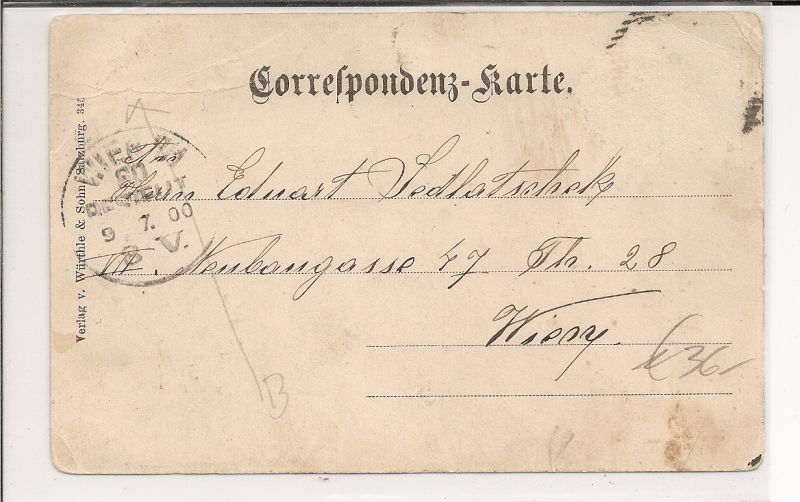 Correspondenz-Karte.
An
Herrn Eduart Sedlatschek
VII. Neubaugasse 47 Th. 28
Wien
k 36-
A
B
WIEN 7/1
60
BESTELLT
9. 7. 00
8 V.
Verlag v. Würthle & Sohn, Salzburg. 345